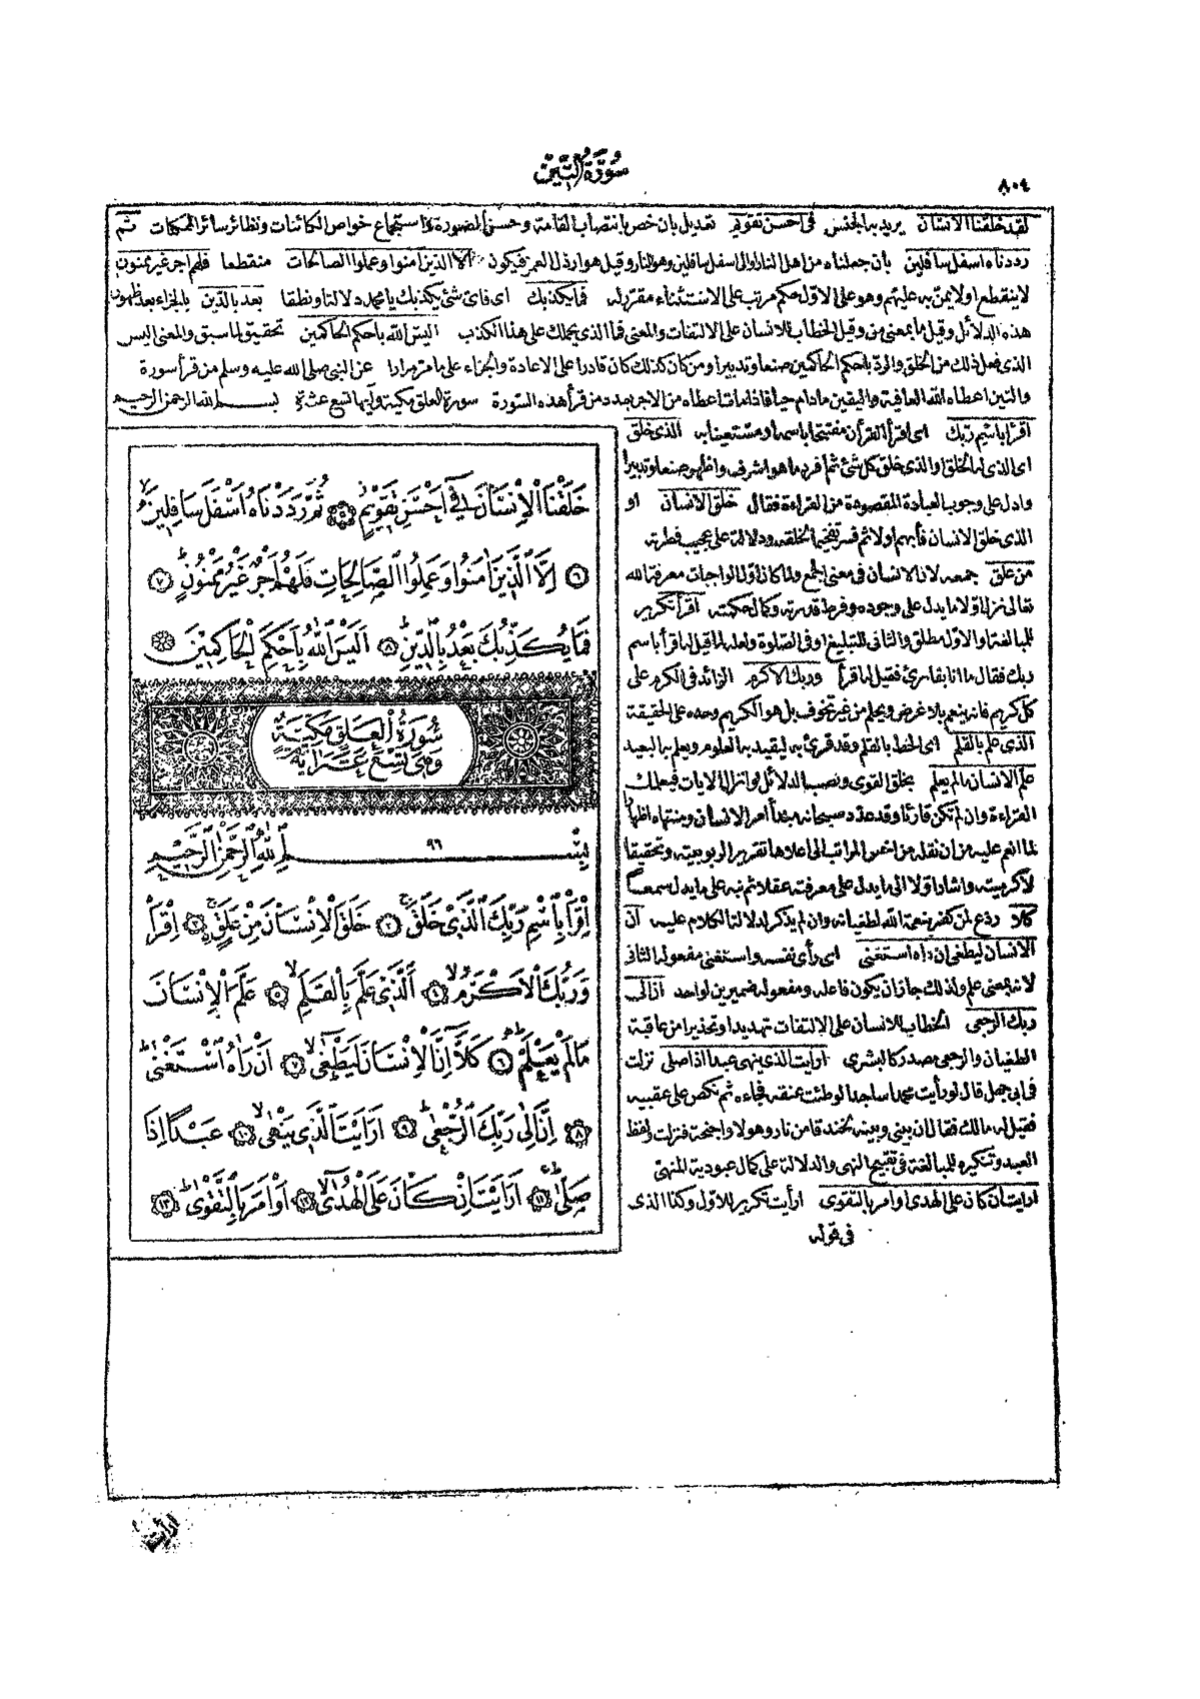 ٨٠٤
سُورَةُ التِّينِ
لقد خلقنا الانسان يريد به الجنس في احسن تقويم تعديل بان خص بانتصاب القامة وحسن الصورة واستجماع خواص الكائنات ونظائر سائر الممكنات ثم
رددناه اسفل سافلين بان جعلناه من اهل النار او الى اسفل سافلين وهو النار وقيل هو ارذل العمر فيكون الا الذين امنوا وعملوا الصالحات منقطعا فلهم اجر غير ممنون
لا ينقطع او لا يمن به عليهم وهو على الاول حكم مرتب على الاستثناء مقرر له فما يكذبك اى فاى شئ يكذبك يا محمد دلالة او نطقا بعد بالدين بالجزاء بعد ظهور
هذه الدلائل وقيل ما بمعنى من وقيل الخطاب للانسان على الالتفات والمعنى فما الذى يحملك على هذا الكذب اليس الله باحكم الحاكمين تحقيق لما سبق والمعنى اليس
الذى فعل ذلك من الخلق والرد باحكم الحاكمين صنعا وتدبيرا ومن كان كذلك كان قادرا على الاعادة والجزاء على ما مر مرارا عن النبى صلى الله عليه وسلم من قرأ سورة
والتين اعطاه الله العافية واليقين مادام حيا فاذا مات اعطاه من الاجر بعدد من قرأ هذه السورة سورة العلق مكية وآيها تسع عشرة بسم الله الرحمن الرحيم
اقرأ باسم ربك اى اقرأ القرأن مفتتحا باسمه او مستعينا به الذى خلق
اى الذى له الخلق او الذى خلق كل شئ ثم افرد ما هو اشرف واظهر صنعا وتدبيرا
وادل على وجوب العبادة المقصودة من القراءة فقال خلق الانسان او
الذى خلق الانسان فأبهم اولا ثم فسر تفخيما لخلقه ودلالة على عجيب فطرته
من علق جمعه لان الانسان فى معنى الجمع ولما كان اول الواجبات معرفة الله
تعالى نزل اولا ما يدل على وجوده وفرط قدرته وكمال حكمته اقرأ تكرير
للمبالغة او الاول مطلق والثانى للتبليغ او فى الصلوة ولعله لما قيل له اقرأ باسم
ربك فقال ما انا بقارئ فقيل له اقرأ وربك الاكرم الزائد فى الكرم على
كل كريم فانه ينعم بلا غرض ويحلم من غير تخوف بل هو الكريم وحده على الحقيقة
الذى علم بالقلم اى الخط بالقلم وقد قرئ به ليقيد به العلوم ويعلم به البعيد
علم الانسان ما لم يعلم بخلق القوى ونصب الدلائل وانزال الايات فيعلمك
القراءة وان لم تكن قارئا وقد عدد سبحانه مبدأ امر الانسان ومنتهاه اظهارا
لما انعم عليه من ان نقله من اخس المراتب الى اعلاها تقريرا لربوبيته وتحقيقا
لاكرميته واشار اولا الى ما يدل على معرفته عقلا ثم نبه على ما يدل سمعا
كلا ردع لمن كفر بنعمة الله لطغيانه وان لم يذكر لدلالة الكلام عليه ان
الانسان ليطغى ان رآه استغنى اى رأى نفسه واستغنى مفعوله الثانى
لانه بمعنى علم ولذلك جاز ان يكون فاعله ومفعوله ضميرين لواحد ان الى
ربك الرجعى الخطاب للانسان على الالتفات تهديدا وتحذيرا من عاقبة
الطغيان والرجعى مصدر كالبشرى ارايت الذى ينهى عبدا اذا صلى نزلت
فى ابى جهل قال لو رأيت محمدا ساجدا لوطئت عنقه فجاءه ثم نكص على عقبيه
فقيل له مالك فقال ان بينى وبينه لخندقا من نار وهولا واجنحة فنزلت ولفظ
العبد وتنكيره للمبالغة فى تقبيح النهى والدلالة على كمال عبودية المنهى
ارايت ان كان على الهدى او امر بالتقوى ارأيت تكرير للاول وكذا الذى
فى قوله
خَلَقْنَا الْاِنْسَانَ فٖٓي اَحْسَنِ تَقْوٖيمٍ ٥ ثُمَّ رَدَدْنَاهُ اَسْفَلَ سَافِلٖينَ
٦ اِلَّا الَّذٖينَ اٰمَنُوا وَعَمِلُوا الصَّالِحَاتِ فَلَهُمْ اَجْرٌ غَيْرُ مَمْنُونٍ ٧
فَمَا يُكَذِّبُكَ بَعْدُ بِالدّٖينِ ٨ اَلَيْسَ اللّٰهُ بِاَحْكَمِ الْحَاكِمٖينَ
سُورَةُ الْعَلَقِ مَكِّيَّةٌ
وَهِيَ تِسْعَ عَشَرَ اٰيَةً
٩٦
بِسْمِ اللّٰهِ الرَّحْمٰنِ الرَّحٖيمِ
اِقْرَأْ بِاسْمِ رَبِّكَ الَّذٖي خَلَقَ ٢ خَلَقَ الْاِنْسَانَ مِنْ عَلَقٍ ٣ اِقْرَأْ
وَرَبُّكَ الْاَكْرَمُ ٤ اَلَّذٖي عَلَّمَ بِالْقَلَمِ ٥ عَلَّمَ الْاِنْسَانَ
مَا لَمْ يَعْلَمْ ٦ كَلَّٓا اِنَّ الْاِنْسَانَ لَيَطْغٰى ٧ اَنْ رَاٰهُ اسْتَغْنٰى
٨ اِنَّ اِلٰى رَبِّكَ الرُّجْعٰى ٩ اَرَاَيْتَ الَّذٖي يَنْهٰى ١٠ عَبْدًا اِذَا
صَلّٰى ١١ اَرَاَيْتَ اِنْ كَانَ عَلَى الْهُدٰى ١٢ اَوْ اَمَرَ بِالتَّقْوٰى ١٣
ارأيت